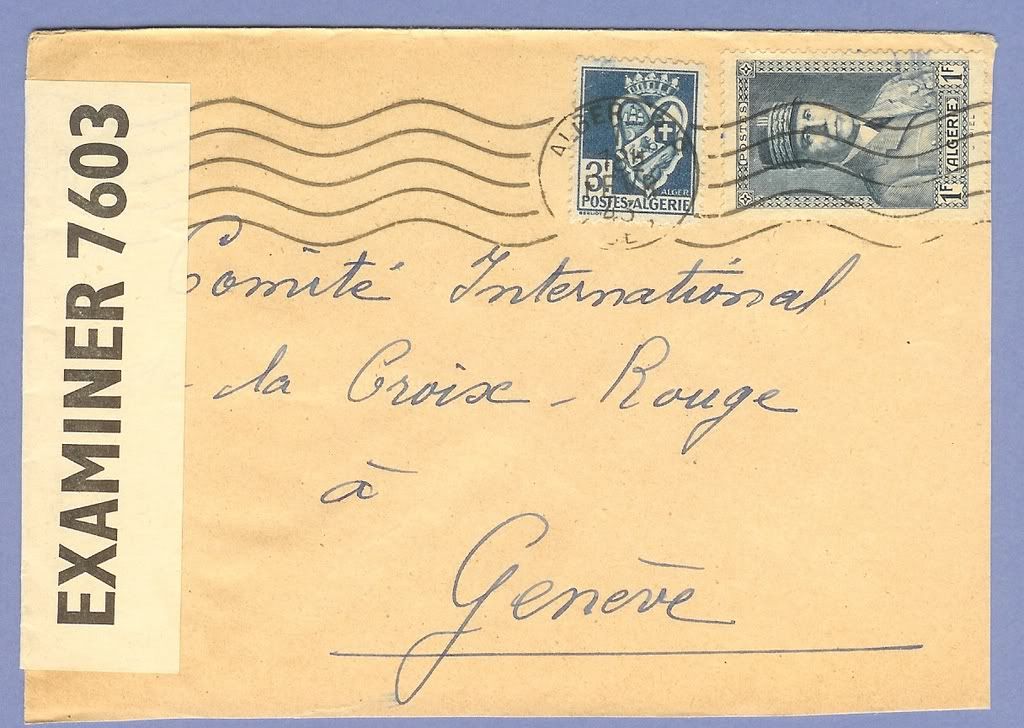 EXAMINER 7603
ALGER
3F
ALGER
POSTES-ALGERIE
POSTES
ALGERIE
1F
1F
Comité International
- la Croix - Rouge
à
Genève